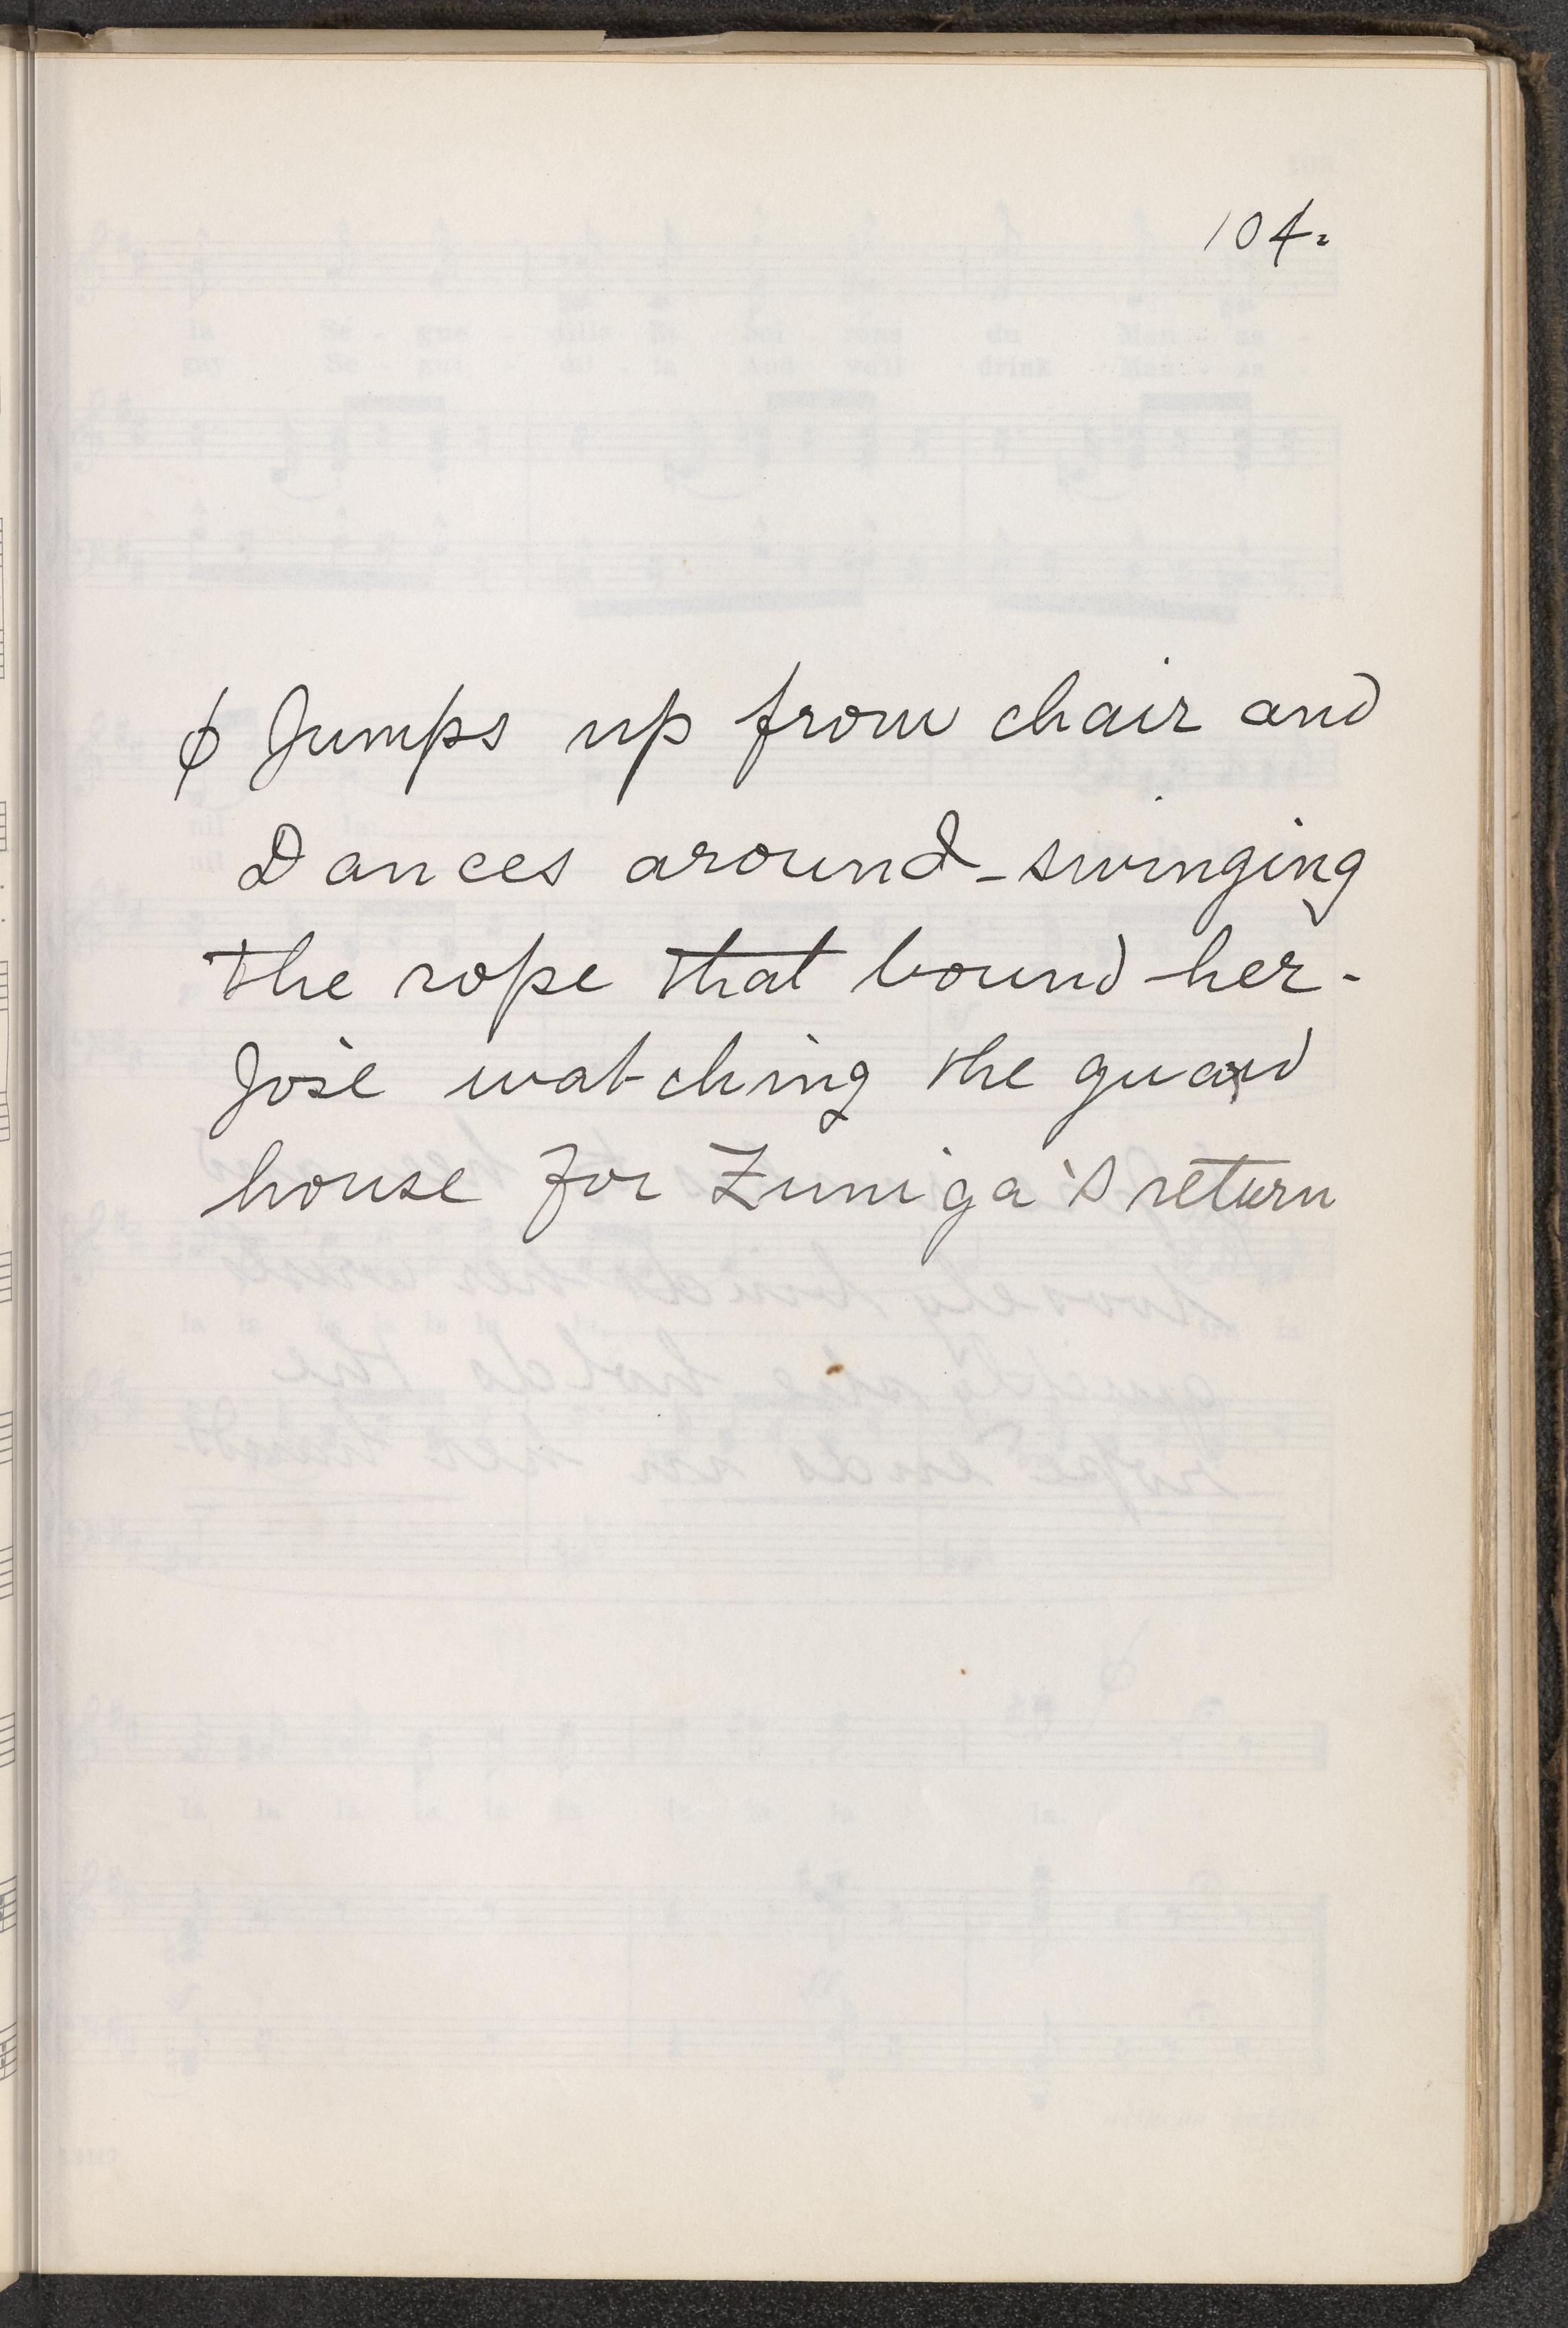 104.
ϕ Jumps up from chair and
Dances around - swinging
the rope that bound her -
José watching the guard
house for Zuniga's return